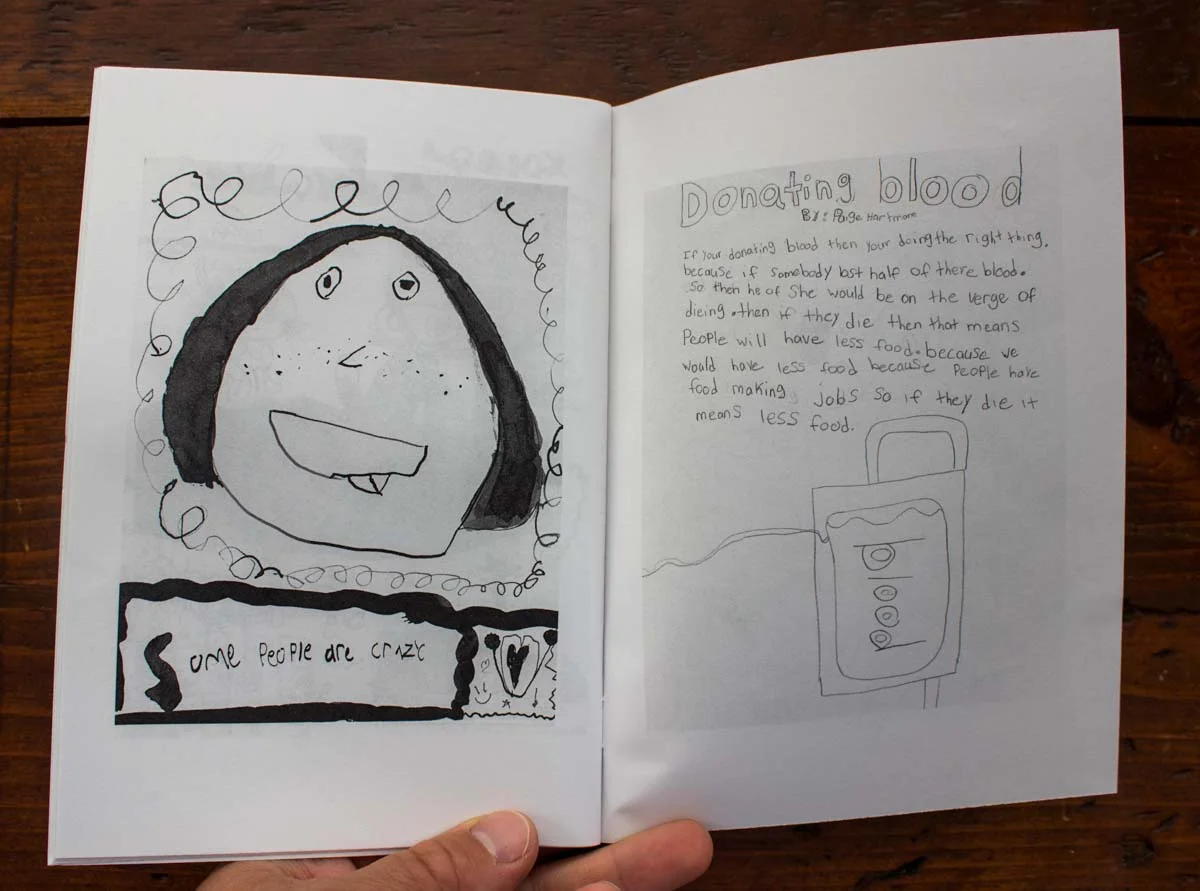 Some People are crazc
Donating blood
By: Paige Hartmore
If your donating blood then your doing the right thing.
because if somebody lost half of there blood.
So then he of She would be on the verge of
dieing. then if they die then that means
People will have less food. because we
would have less food because People have
food making jobs so if they die it
means less food.